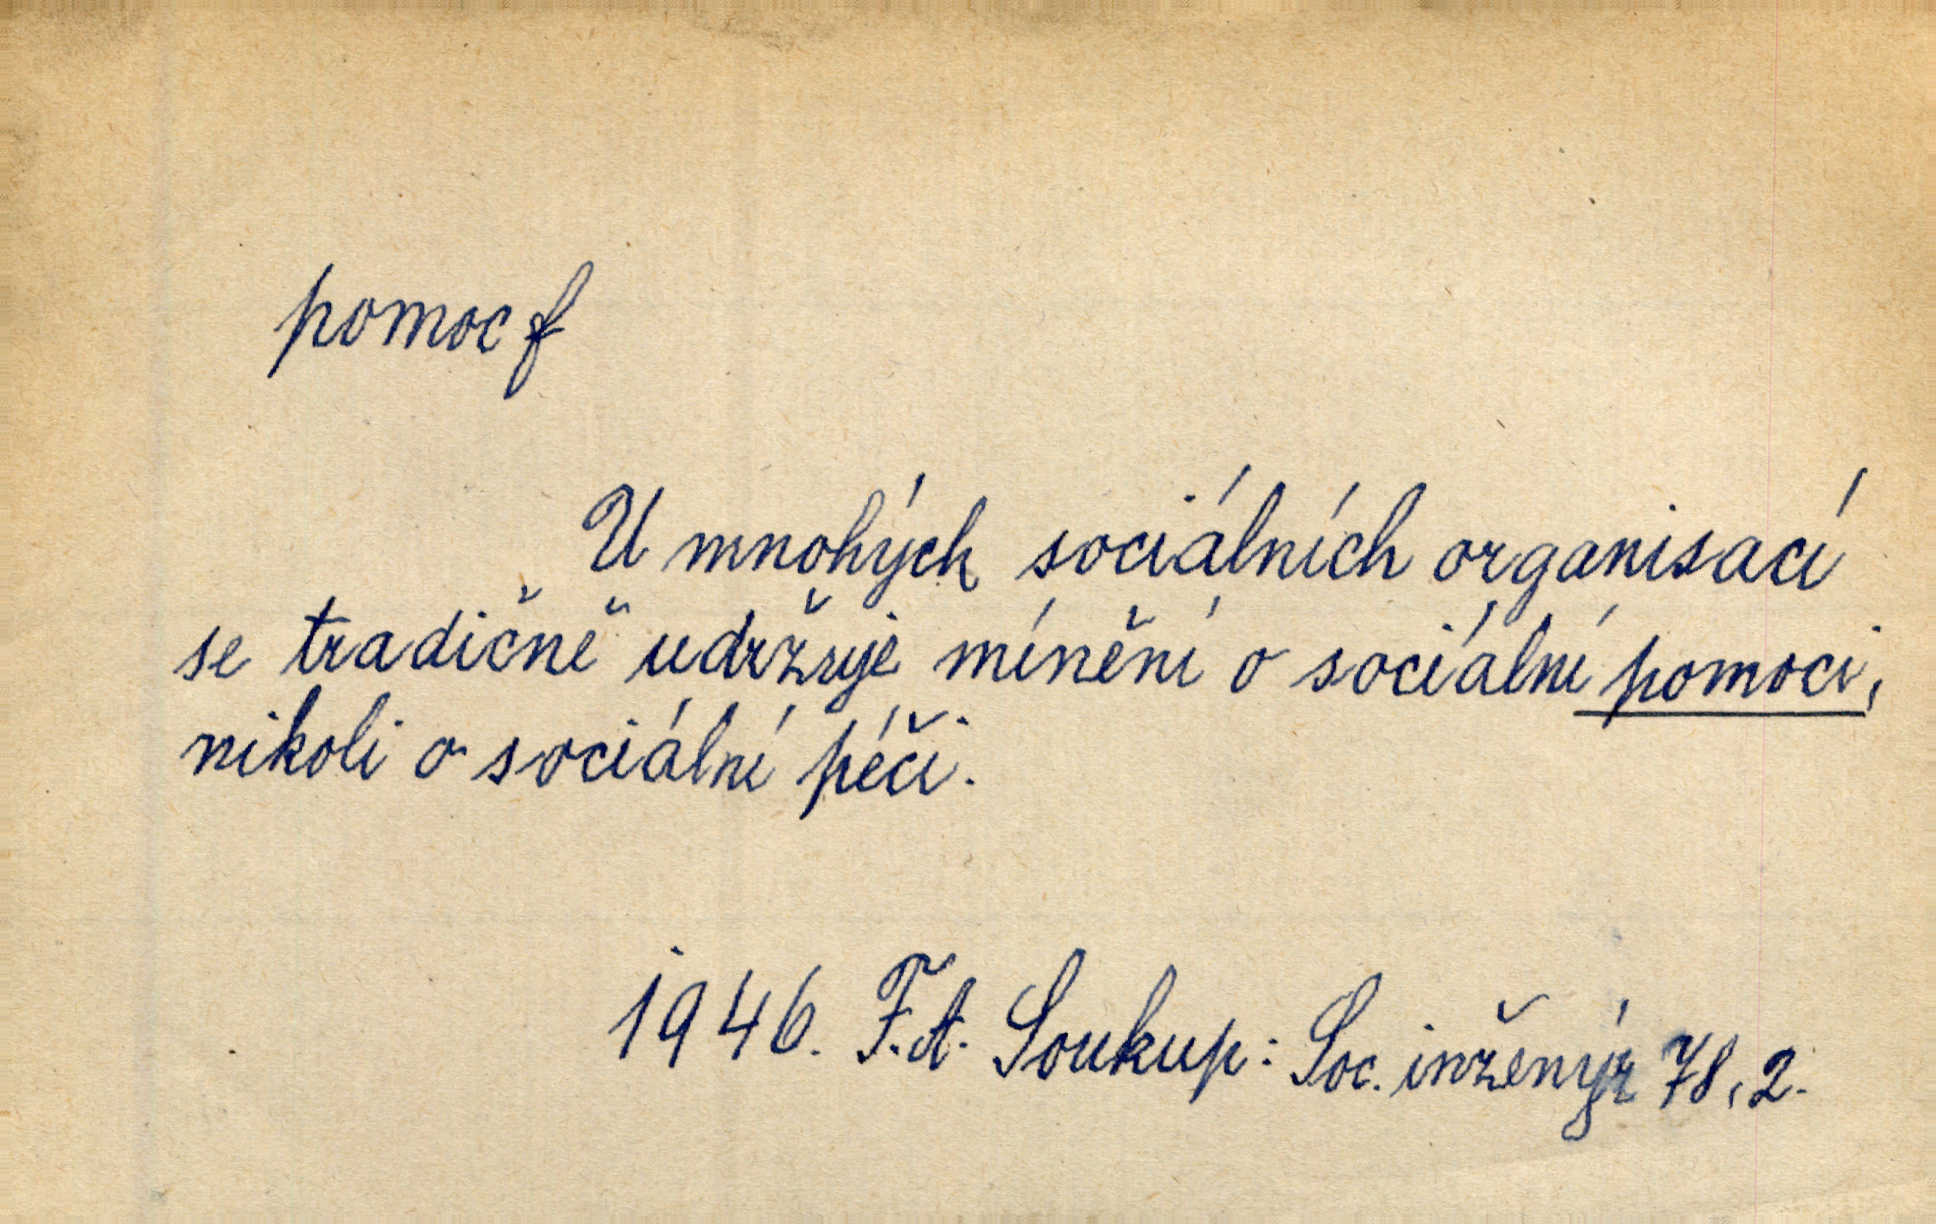 pomoc f
U mnohých sociálních organisací
se tradičně udržuje mínění o sociální pomoci,
nikoli o sociální péči.
1946. F.A. Soukup: Soc. inženýr 78, 2.